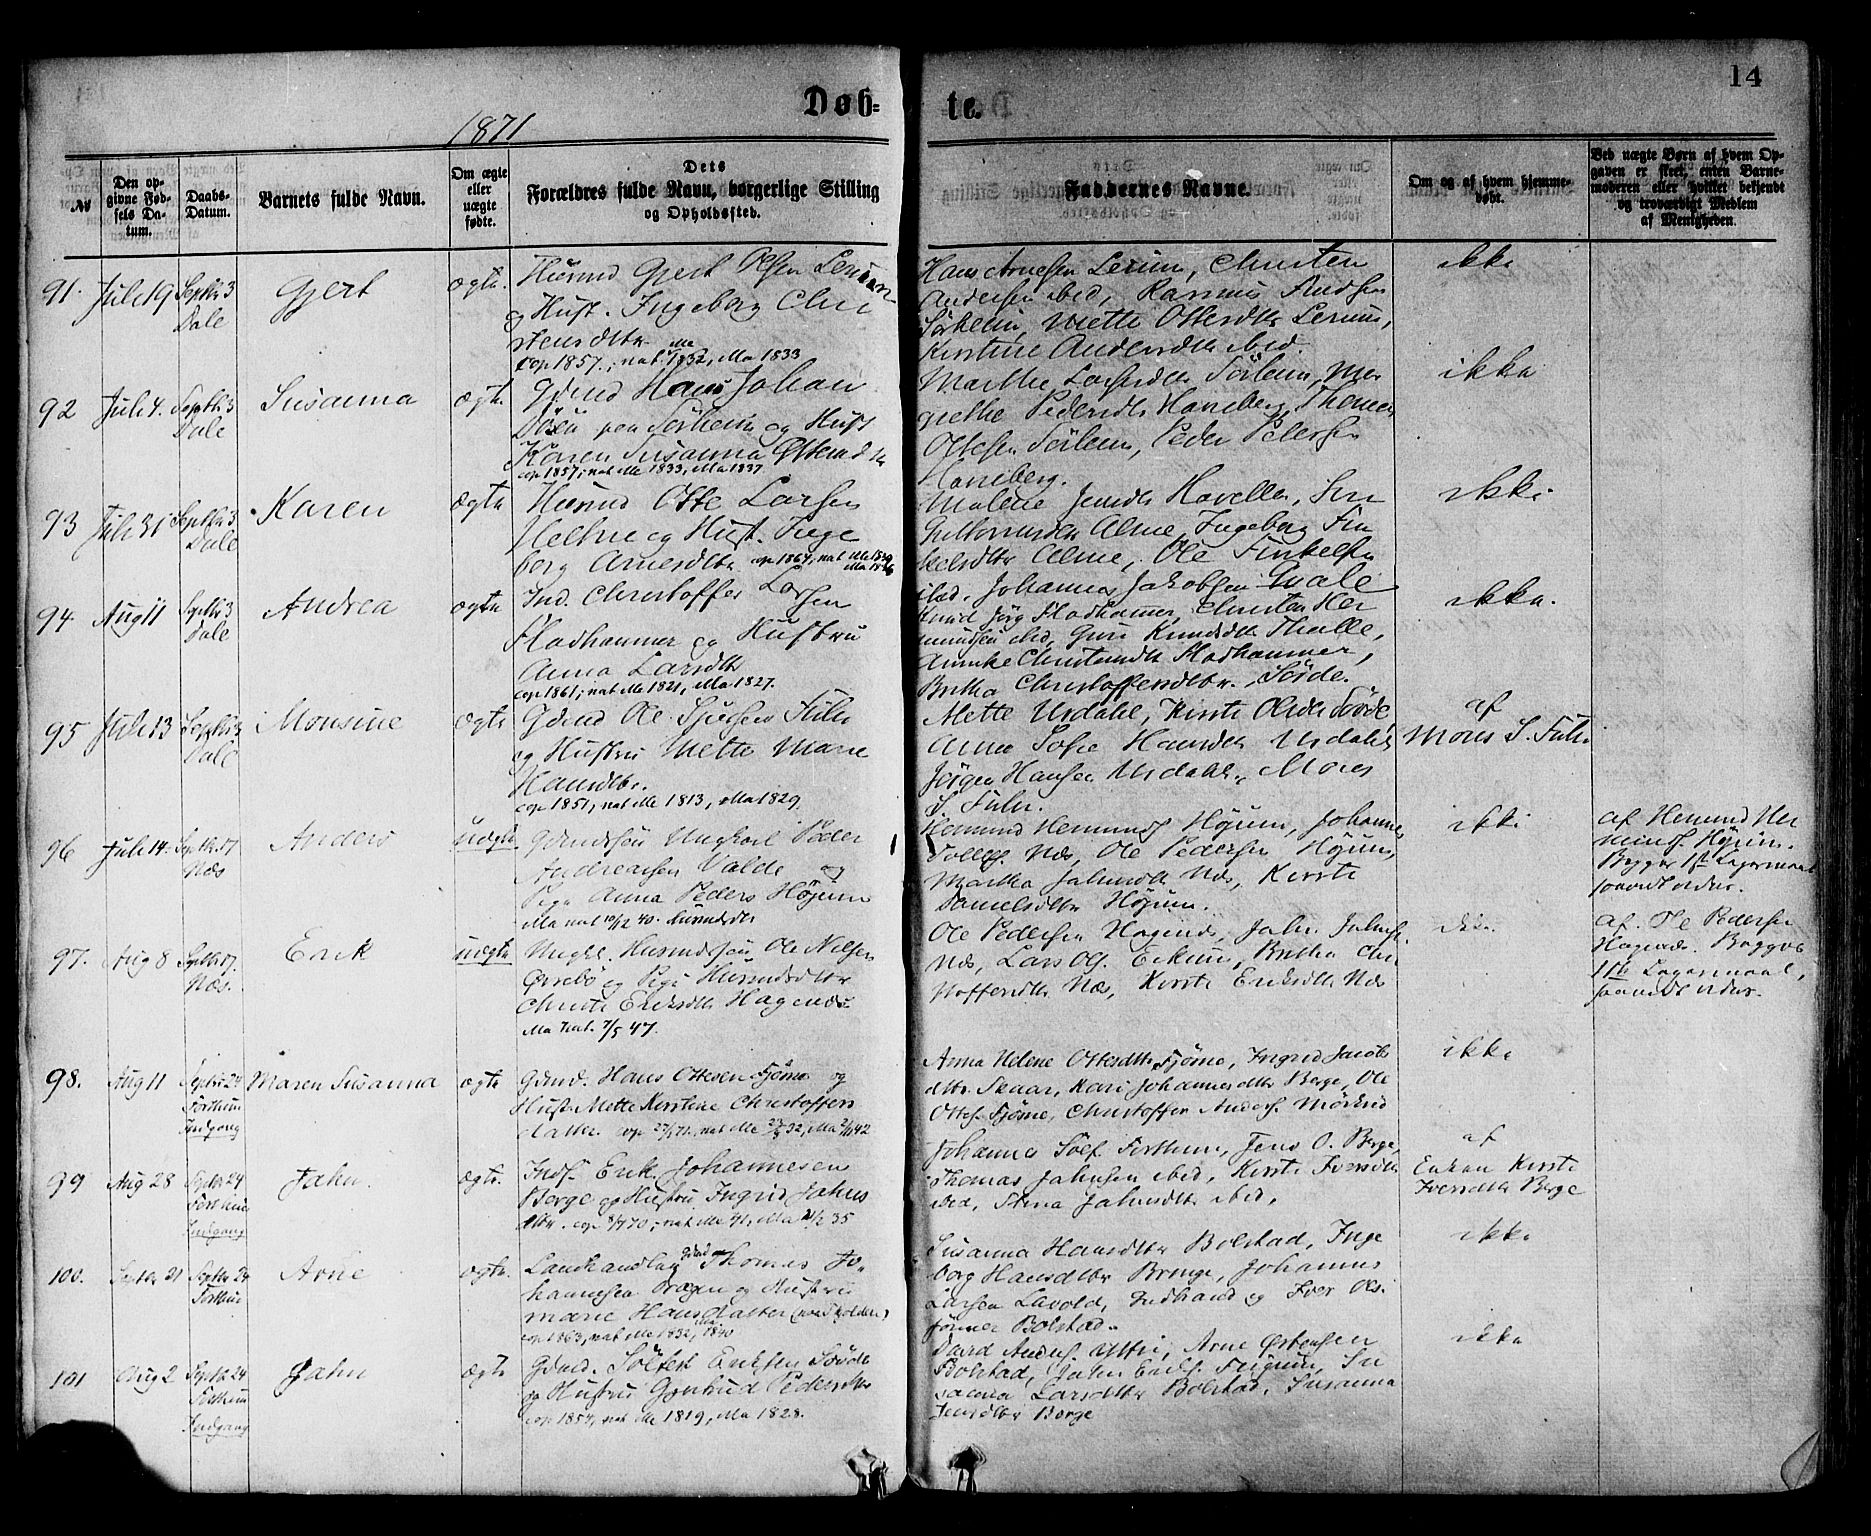 14
Døb-
te.
1871
№
Den op-
givne Fød-
sels Da-
tum.
Daabs-
Datum.
Barnets fulde Navn.
Om ægte
eller
uægte
fødte.
Dets
Forældres fulde Navn, borgerlige Stilling
og Opholdssted.
Faddernes Navne.
Om og af hvem hjemme-
døbt.
Ved uægte Børn af hvem Op-
gaven er skeet, enten Barne-
moderen eller hvilket bekjendt
og troværdigt Medlem
af Menigheden.
91.
Juli 19
Septbr 3
Dale
Gjert
ægte.
Husmd Gjert Olsen Lerum
og Hust. Ingeborg Chri
stensdtr.
cop 1857; nat Me 1832, Ma 1833
Hans Arnesen Lerum, Christen
Andersen ibid, Rasmus Andsen
Sørheim, Mette Ottesdtr Lerum,
Kirstine Andersdtr ibid.
ikke
92
Juli 4.
Septbr 3
Dale
Susanna
ægte.
Gdmd Hans Johan
Døsen paa Sørheim og Hust
Karen Susanna Ottesdtr
cop 1857; nat Me 1833, Ma 1837.
Marthe Larsdtr Sørheim, Mar
grethe Pedersdtr Haneberg, Thomas
Ottesen Sørheim, Peder Petersen
Haneberg.
ikke
93
Juli 31
Septbr 3
Dale
Karen
ægte
Husmd Otte Larsen
og Hust. Inge
borg Arnesdtr cop 1864, nat Me 1839
Malene Jensdtr
Alme, Ingeborg Fin
kelsdtr Alme, Ole Finkelsen
ibid, Johannes Jakobsen Kvale
ikke
94
Aug 11
Septbr 3
Dale
Andrea
ægte
Ind. Christoffer Larsen
Fladhammer og Hustru
Anna Larsdtr
cop 1861; nat Me 1821, Ma 1827.
Knud Jörg Fladhammer, Christen Her
mundsen ibid, Guri Knudsdtr
Annike Christensdtr Fladhammer,
Britha Christoffersdtr.
ikke.
95
Juli 13
Septbr 3
Dale
Monsine
ægte
Gdmd Ole Sjursen Fuhr
og Hustru Mette Marie
Hansdtr.
cop 1851; nat Me 1813, Ma 1829
Mette Urdahl, Kirsti Olsdtr
Anna Sofie Hansdtr Urdahl
Jørgen Hansen Urdahl, Mons
S Fuhr.
af
Mons S. Fuhr
96
Juli 14.
Septbr 17
Næs
Anders
uægte
Gdmdssøn Ungkarl Peder
Andreassen Valde og
Pige Anna Peders Høyum
Ma nat 10/12 40. Husmdsdtr
Hermund Hermunds Høyum, Johannes
Tollefs. Næs, Ole Pedersen Høyum,
Martha Jahnsdtr Næs, Kirsti
Danielsdtr Høyum.
ikke
af Hermund Her
munds. Høyum.
Begges 1ste Leiermaal
saavidt vides.
97.
Aug 8
Septbr 17.
Næs.
Erik
uægte
Ungk. Husmdssøn Ole Nilsen
Ørrebø og Pige Husmdsdtr
Christi Eriksdtr Hagenæs
Ma nat. 7/5 47.
Ole Pedersen Hagenæs, Jahn Jahns.
Næs, Lars Ols. Eikum, Britha Chri
stoffersdtr Næs, Kirsti Eriksdtr Næs
ikke.
af. Ole Pedersen
Hagenæs. Begges
1ste Leiermaal,
saavidt vides.
98.
Aug 11
Septbr 24
Forthun
Indgang
Maren Susanna
ægte
Gdmd. Hans Ottesen Fjøsne og
Hust. Mette Kirstine Christoffers
datter. cop 27/ 71. nat Me 27/9 32, Ma 2/11 42
Anna Helene Ottesdtr Fjøsne, Ingrid Jacobs
dtr. Skaar, Kari Johannesdtr Berge, Ole
Ottes. Fjøsne, Christoffer Anders. Mörkrid
ikke
99
Aug 28
Septbr 24
Forthun
Indgang
Jahn.
ægte.
Inds. Erik Johannesen
Berge og Hustru Ingrid Jahns
dtr. cop 3/7 70; nat Me 41, Ma 2/12 35
Johannes Sølf. Forthun, Jens O. Berge,
Thomas Jahnsen ibid, Kirsti Iversdtr
ibid, Stina Jahnsdtr ibid.
af
Enken Kirsti
Iversdtr Berge
100.
Septbr 21
Septbr 24
Forthun
Arne
ægte.
Landhandler Gdmd og Thomas Jo-
hannesen Drægni og Hustru
Marie Hansdatter
cop 1863, nat Me 1832, Ma 1840
Susanna Hansdtr Bolstad, Inge
borg Hansdtr Bringe, Johannes
Larsen Lavold, Gudbrand og Iver Ols.
sønner Bolstad.
ikke
101
Aug 2
Septbr 24
Forthun
Indgang
Jahn
ægte
Gdmd. Sølfest Eriksen
og Hustru Gjertrud Pedersdtr
cop 1854, nat Me 1819, Ma 1828.
David Anders. Arne Østensen
Bolstad, Jahn Eriks. Su
sanna Larsdtr Bolstad, Susanna
Jensdtr Berge
ikke